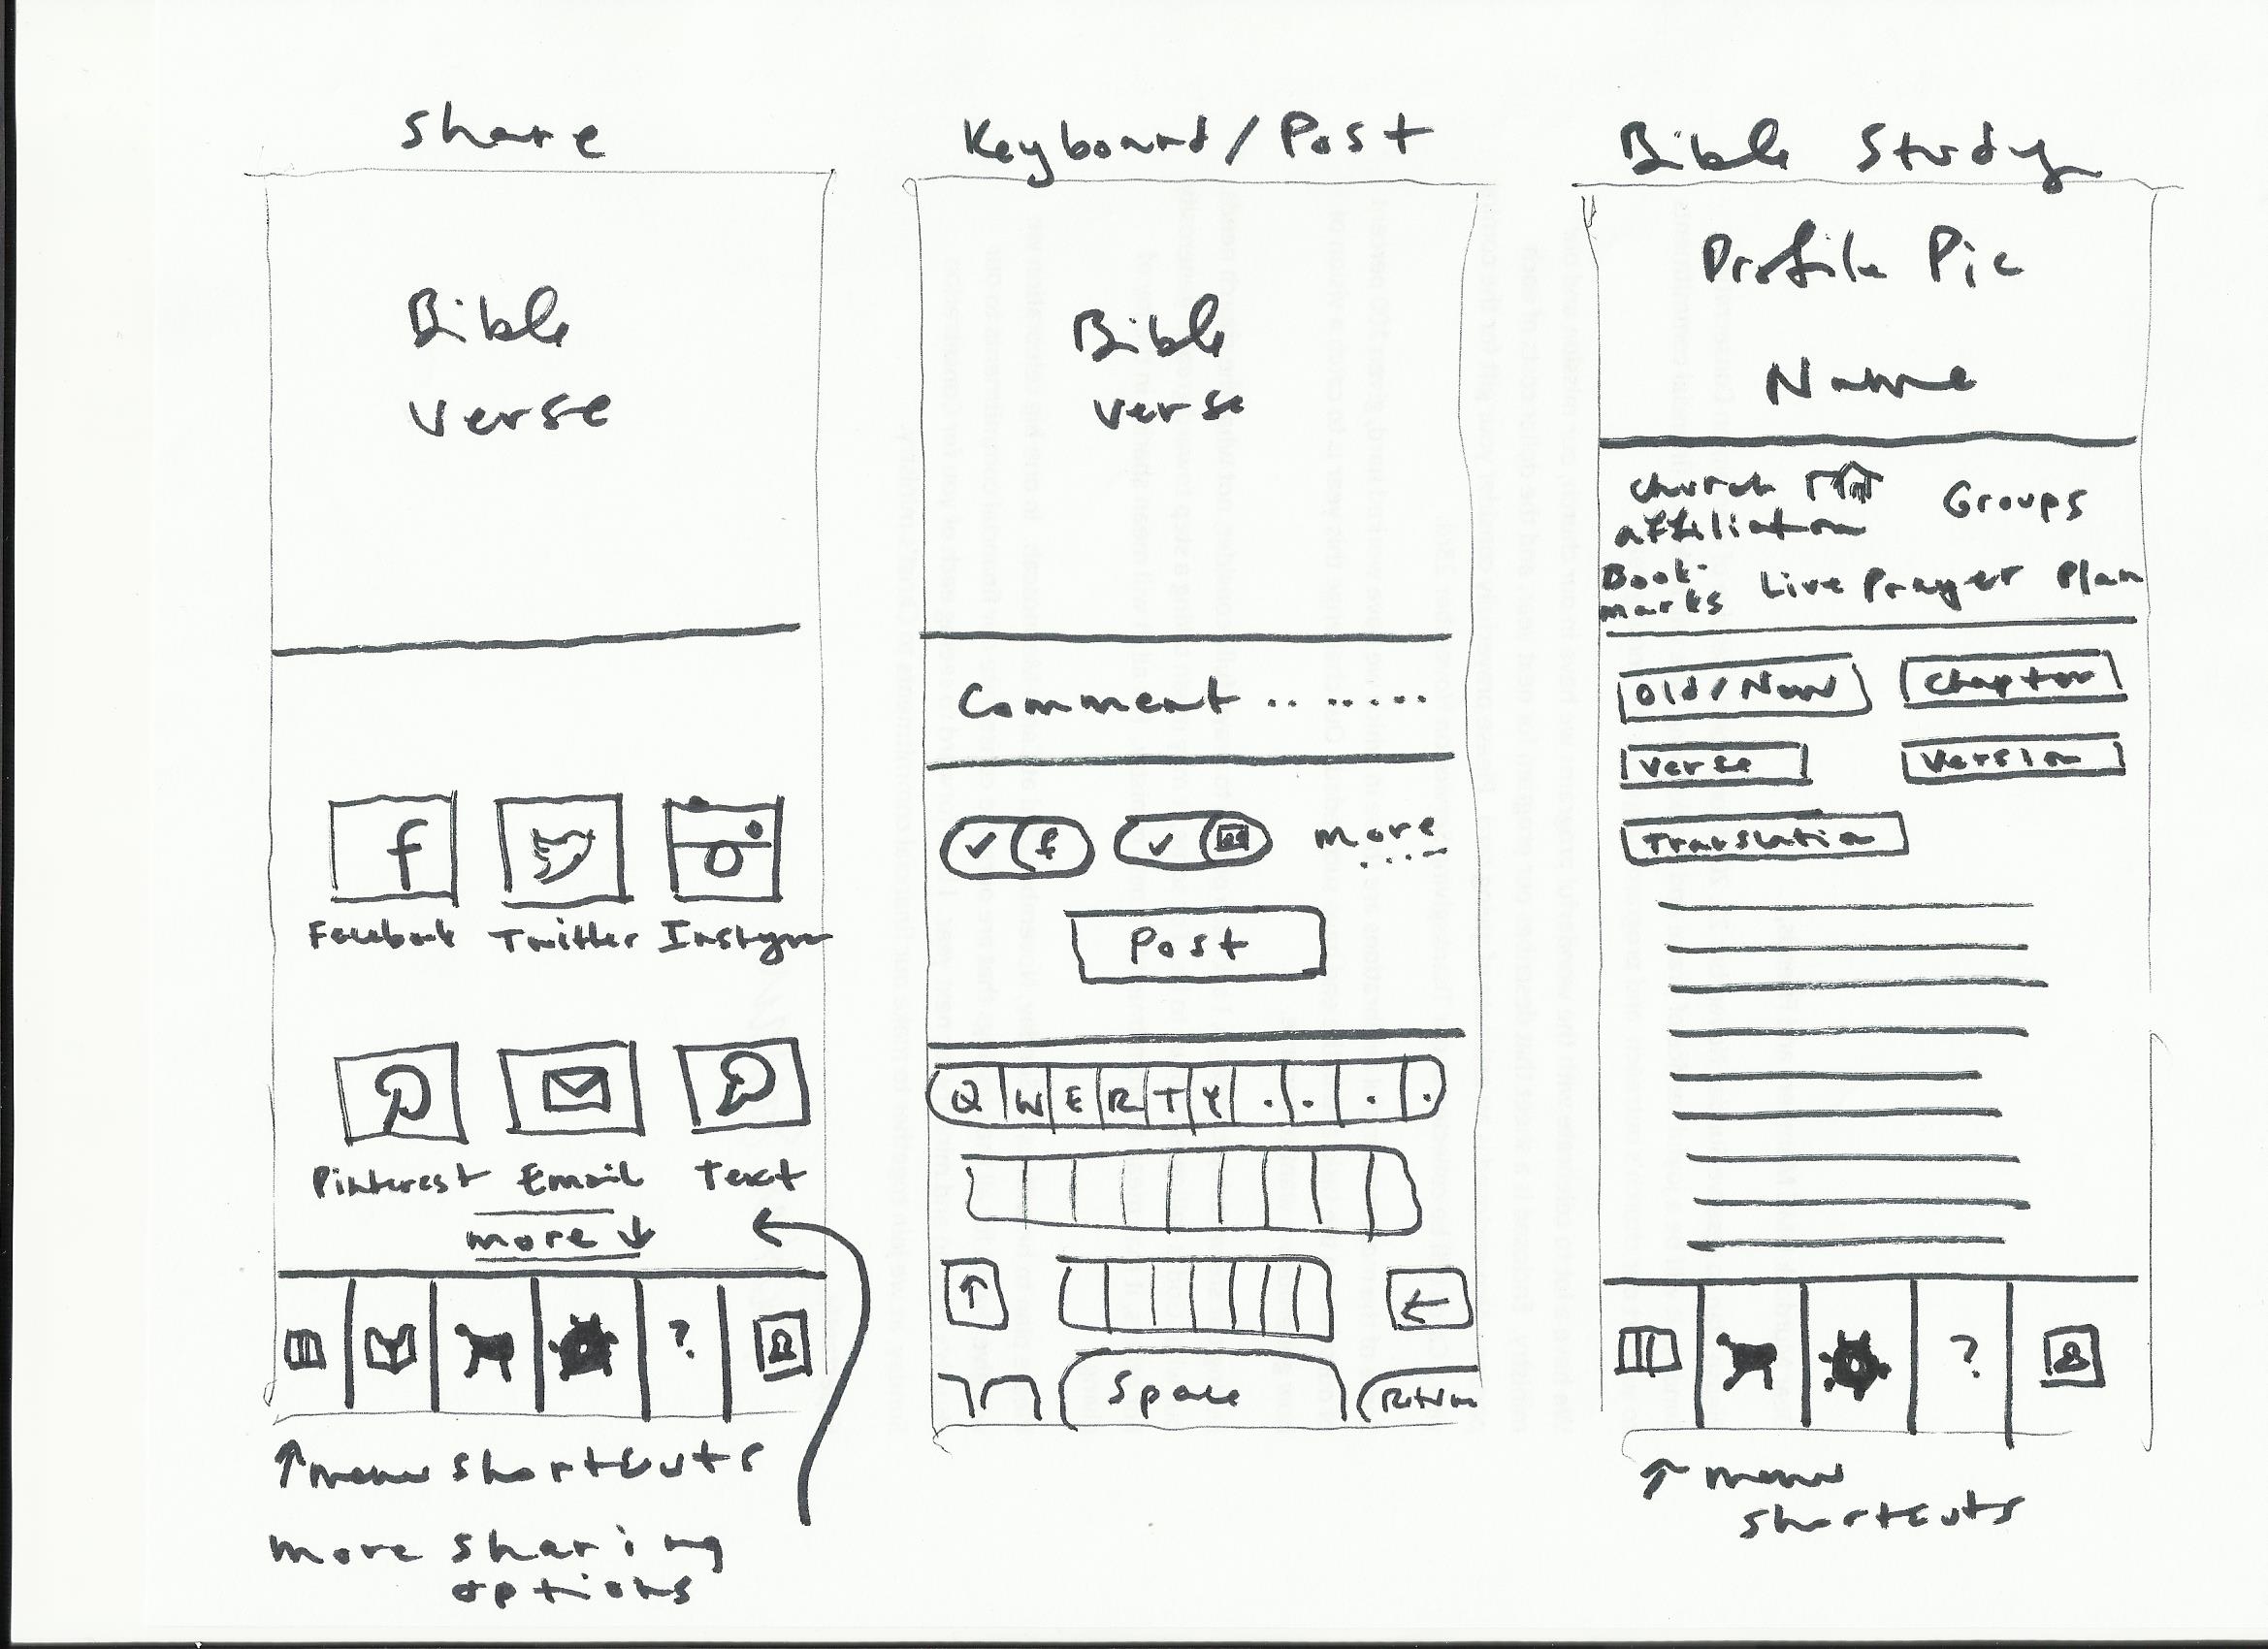 Share
Bible
Verse
f
Facebook Twitter Instagram
Pinterest Email Text
more ↓
?
↑ menu shortcuts
more sharing
options
Keyboard/Post
Bible
verse
Comment .. .....
✓ f ✓ more
....
Post
Q W E R T Y . . . .
↑ ←
Space Return
Bible Study
Profile Pic
Name
Church
affiliation
Groups
Book-
marks
Live Prayer Plan
Old/New Chapter
Verse Version
Translation
?
↑ menu
shortcuts